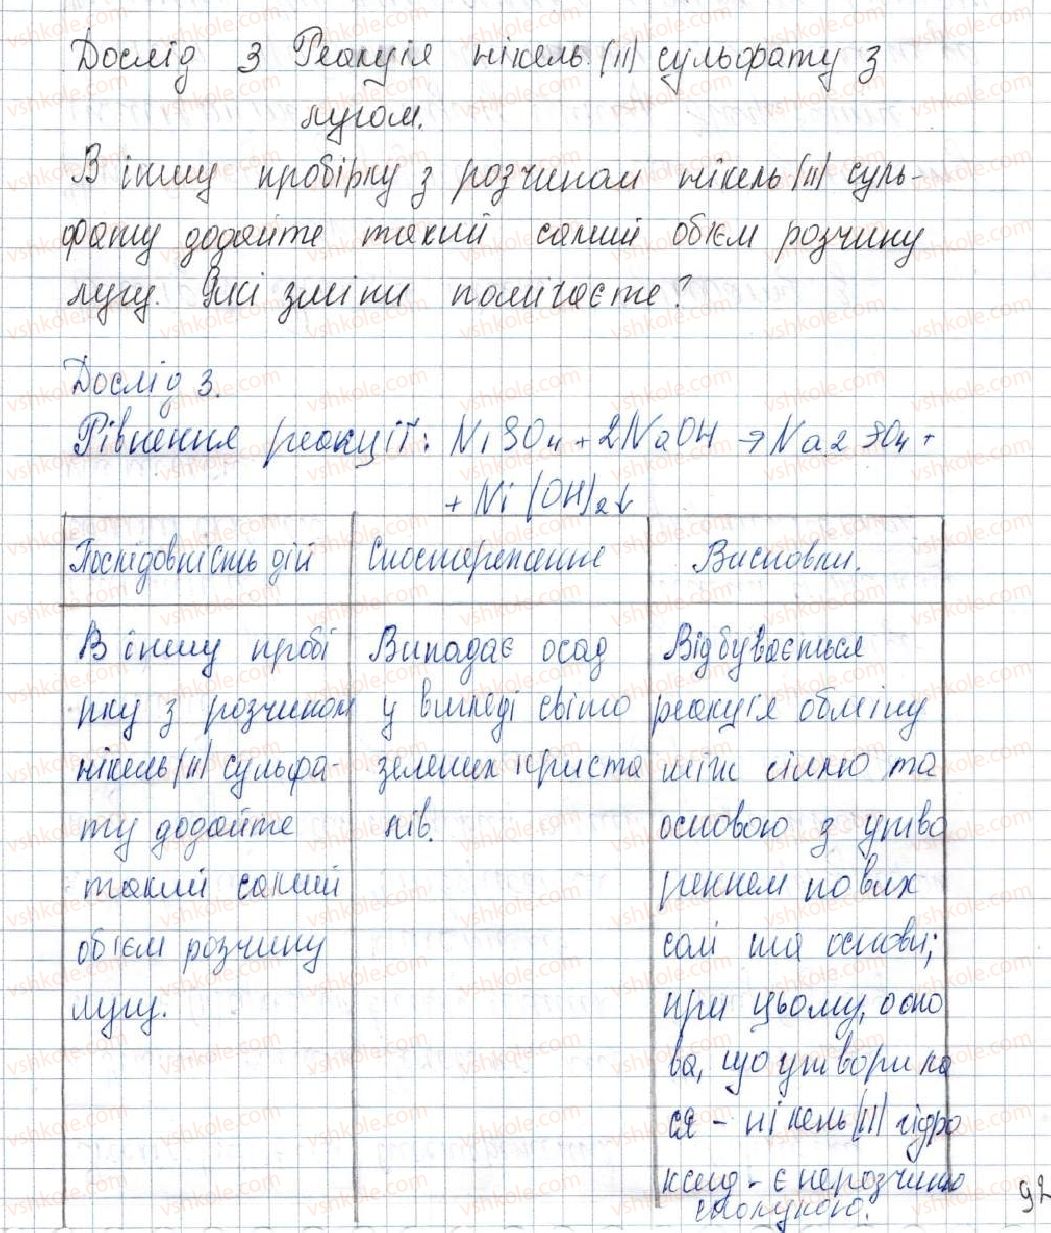 Дослід 3 Реакція нікель (II) сульфату з
лугом.
В іншу пробірку з розчином нікель (II) суль-
фату додайте такий самий об'єм розчину
лугу. Які зміни помічаєте?
Дослід 3.
Рівняння реакції: NiSO4 + 2NaOH → Na2SO4 +
+ Ni(OH)2↓
Послідовність дій
Спостереження
Висновки.
В іншу пробі
рку з розчином
нікель (II) сульфа-
ту додайте
такий самий
об'єм розчину
лугу.
Випадає осад
у вигляді світло
зелених криста
лів.
Відбувається
реакція обміну
між сіллю та
основою з утво
ренням нових
солі та основи;
при цьому, осно
ва, що утворила
ся - нікель (II) гідро
ксид - є нерозчинно
сполукою.
92